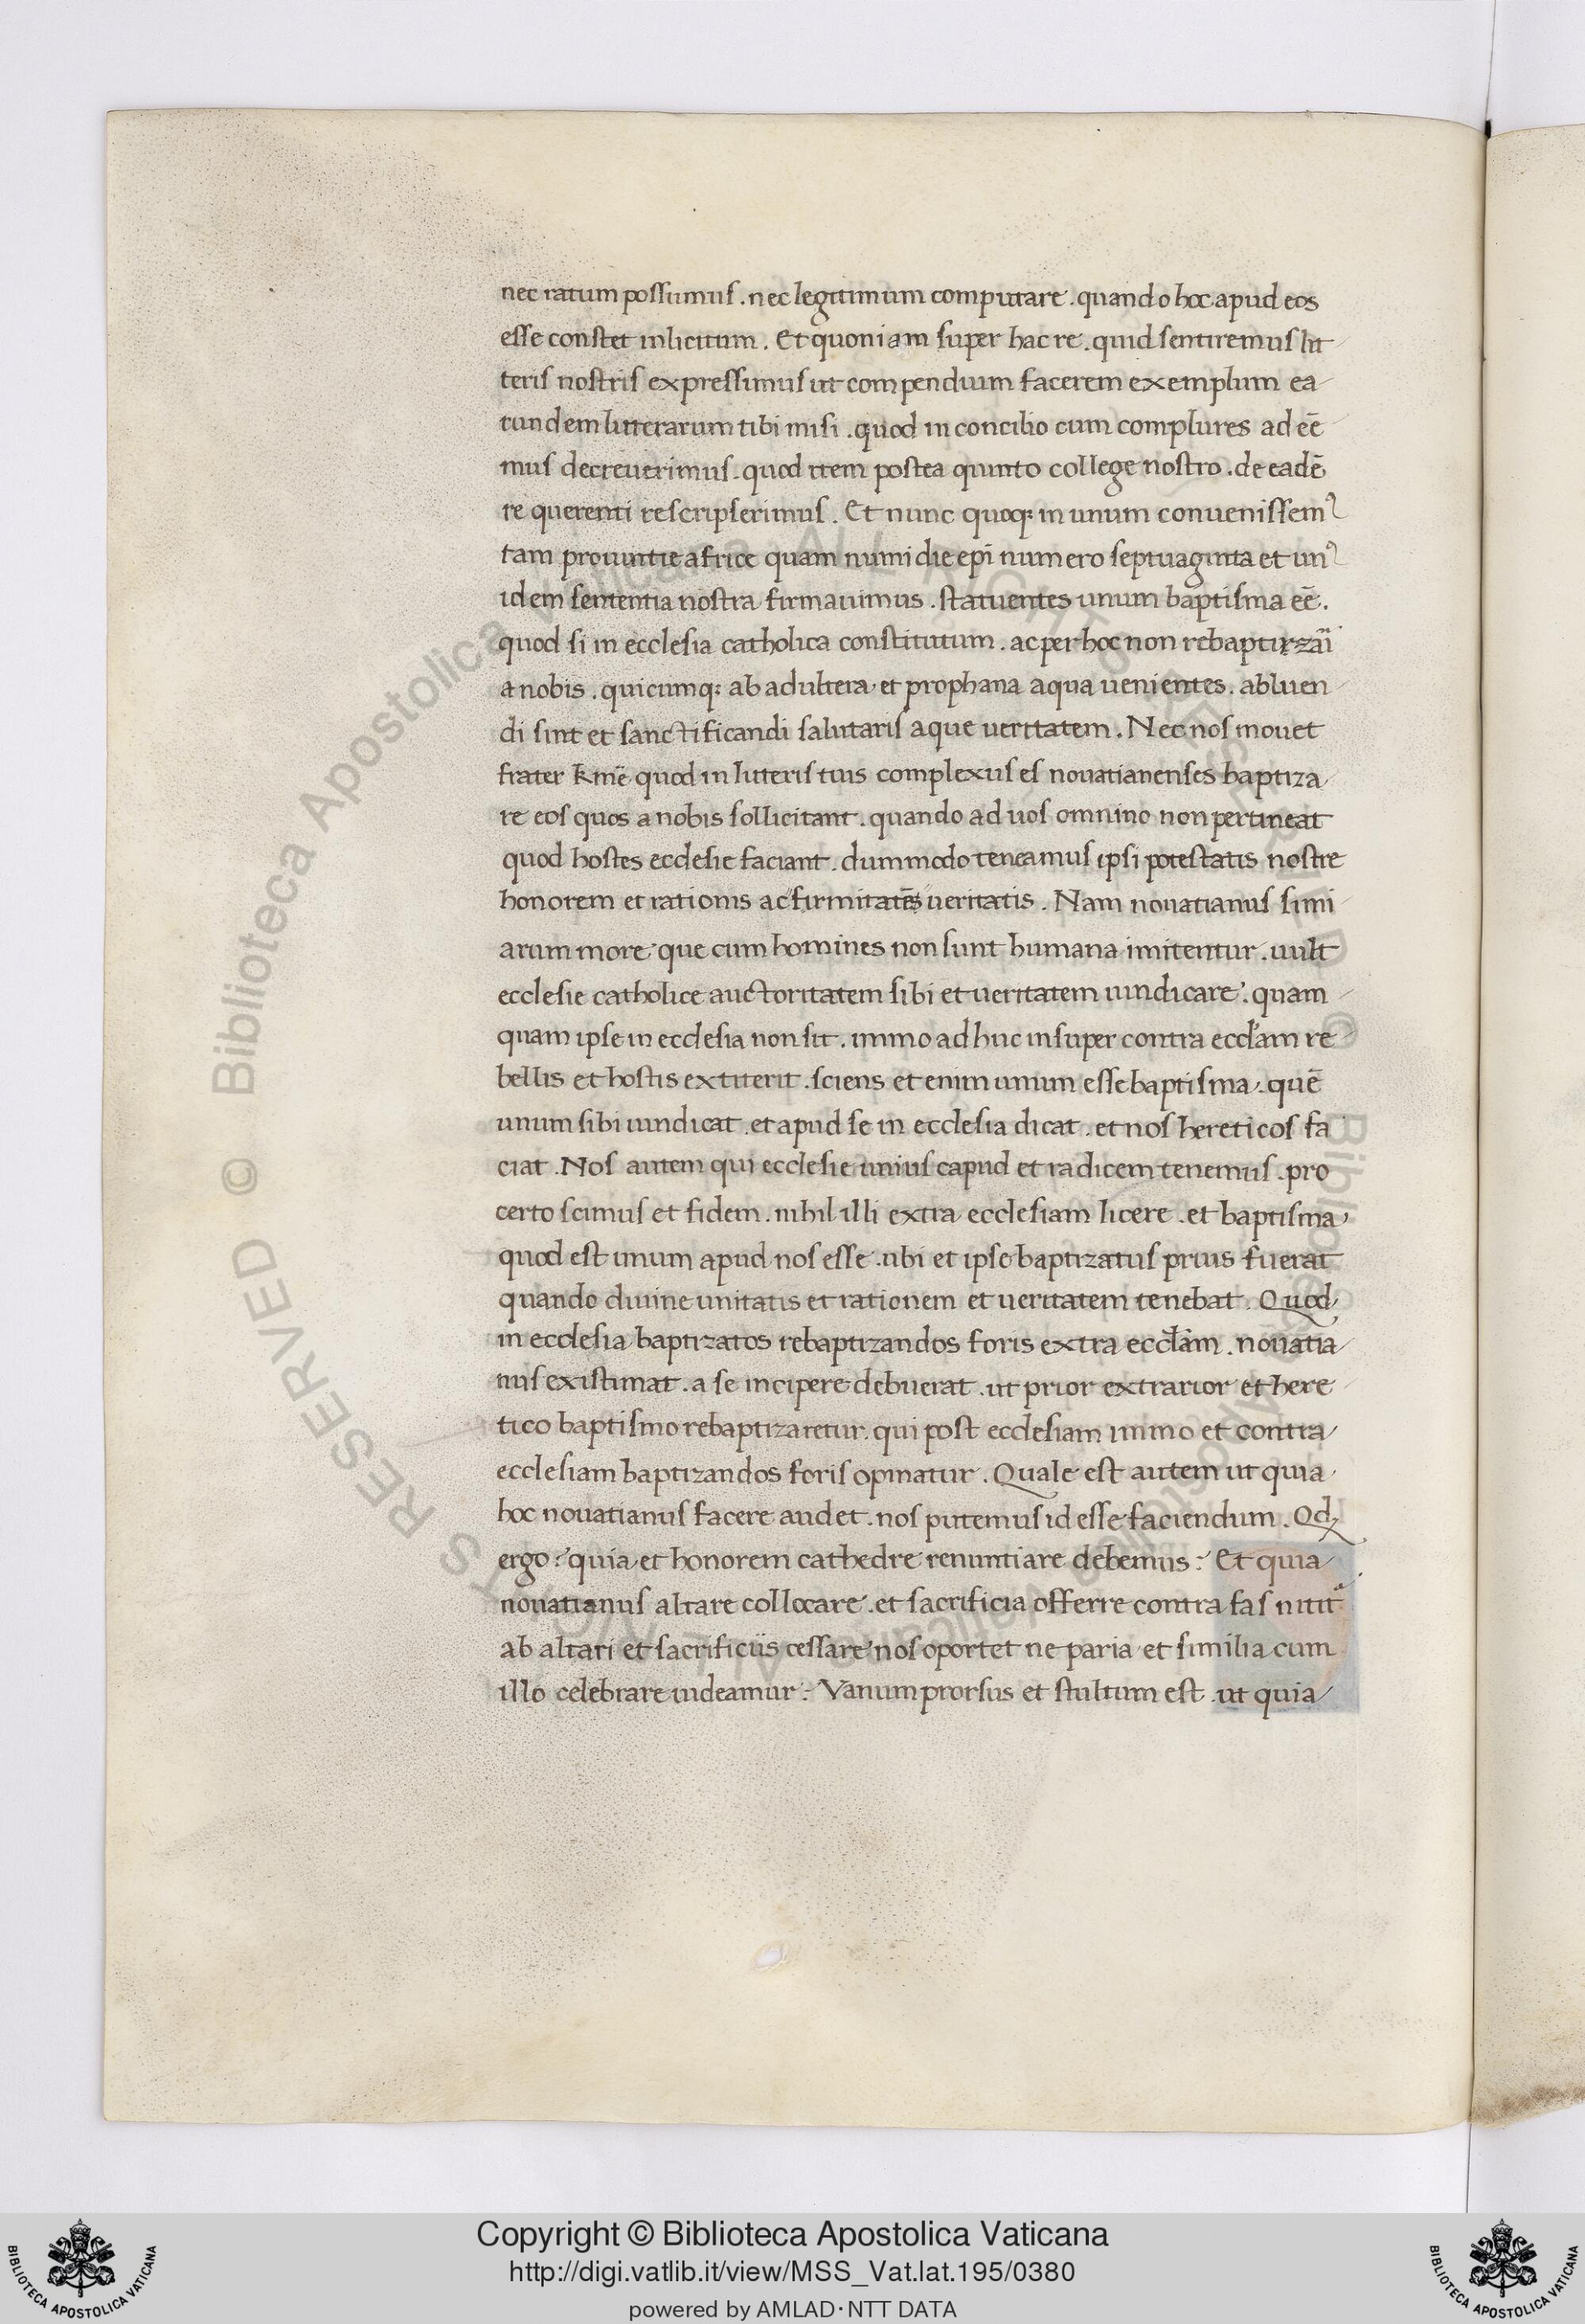 nec ratum possumus . nec legitimum computare . quando hoc apud eos
esse constet inlicitum . Et quoniam super hac re . quid sentiremus lit
teris nostris expressimus ut compendium facerem exemplum ea
rundem litterarum tibi misi . quod in concilio cum complures adeē
mus decreuerimus . quod item postea quinto college nostro . de eadē
re querenti rescripserimus . Et nunc quoq; in unum conuenissemꝰ
tam prouintie africe quam numidie epī numero septuaginta et unꝰ
idem sententia nostra firmauimus . statuentes unum baptisma eē .
quod si in ecclesia catholica constitutum . ac per hoc non rebaptizari
a nobis . quicumq; ab adultera et prophana aqua uenientes . abluen
di sint et sanctificandi salutaris aque ueritatem . Nec nos mouet
frater k̄mē quod in litteris tuis complexus es nouatianenses baptiza
re eos quos a nobis sollicitant . quando ad uos omnino non pertineat
quod hostes ecclesie faciant . dummodo teneamus ipsi potestatis nostre
honorem et rationis ac firmitatēs ueritatis . Nam nouatianus simi
arum more que cum homines non sunt humana imitentur . uult
ecclesie catholice auctoritatem sibi et ueritatem uindicare . quam
quam ipse in ecclesia non sit . immo ad huc insuper contra eccl̄am re
bellis et hostis extiterit . sciens et enim unum esse baptisma . quē
unum sibi uindicat . et apud se in ecclesia dicat . et nos hereticos fa
ciat . Nos autem qui ecclesie unius capud et radicem tenemus . pro
certo scimus et fidem . nihil illi extra ecclesiam licere . et baptisma
quod est unum apud nos esse . ubi et ipse baptizatus prius fuerat
quando diuine unitatis et rationem et ueritatem tenebat . Quod
in ecclesia baptizatos rebaptizandos foris extra eccl̄am . nouatia
nus existimat . a se incipere debuerat . ut prior extrarior et here
tico baptismo rebaptizaretur . qui post ecclesiam immo et contra
ecclesiam baptizandos foris opinatur . Quale est autem ut quia
hoc nouatianus facere audet . nos putemus id esse faciendum . Qd
ergo ? quia et honorem cathedre renuntiare debemus ? Et quia
nouatianus altare collocare . et sacrificia offerre contra fas nitit᷑
ab altari et sacrificiis cessare nos oportet ne paria et similia cum
illo celebrare uideamur ? Vanum prorsus et stultum est . ut quia
Copyright © Biblioteca Apostolica Vaticana
http://digi.vatlib.it/view/MSS_Vat.lat.195/0380
powered by AMLAD·NTT DATA